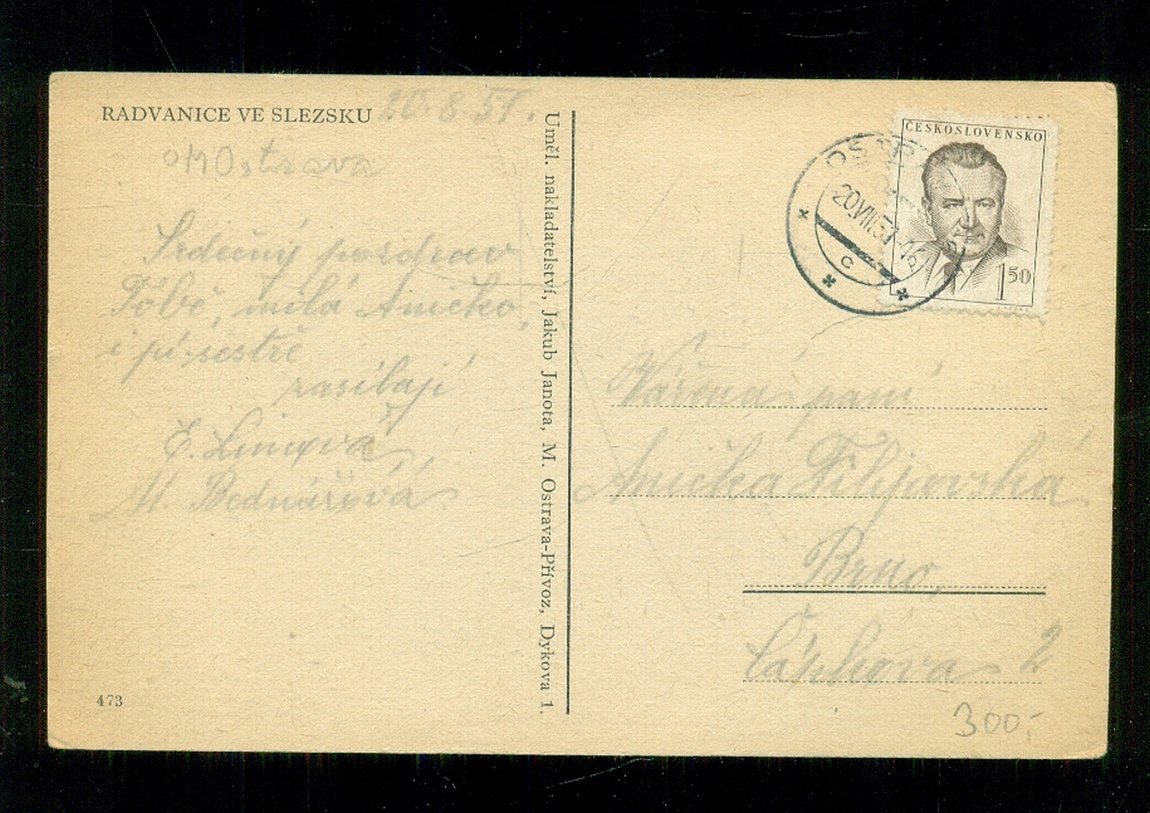 RADVANICE VE SLEZSKU 20.8.51.
Ostrava
Srdečný pozdrav
Tobě, milá Aničko,
i pí sestře
zasílají
M. Bednářová
Uměl. nakladatelství, Jakub Janota, M. Ostrava-Přívoz, Dykova 1.
473
ČESKOSLOVENSKO
1 50
20.VIII.51
C
Vážená paní
Anička
Brno,
Čápkova 2
300,-